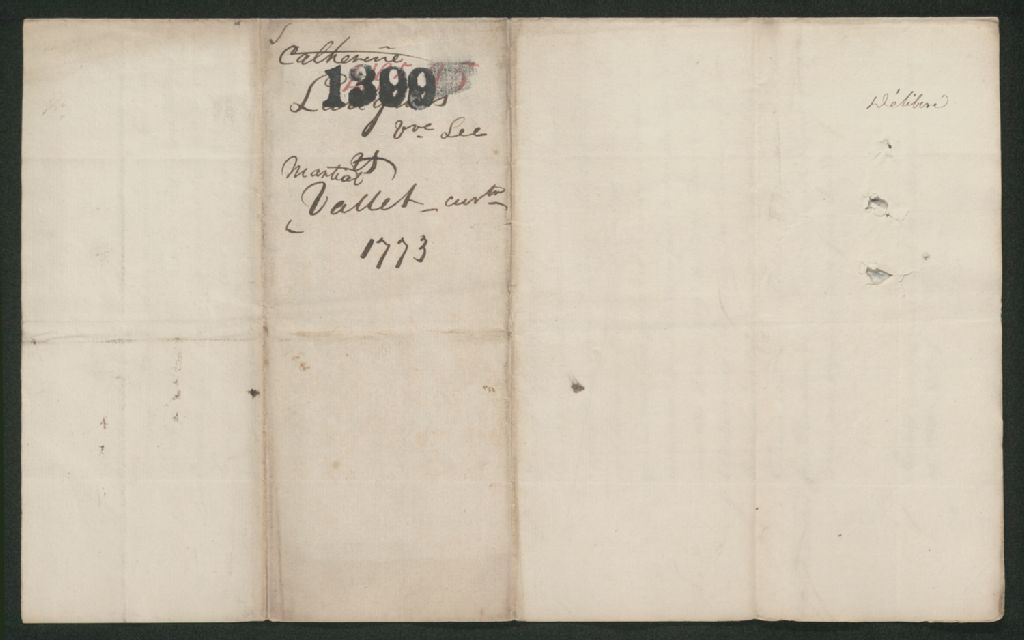 Catherine
1399
vve Lee
Martial
Vallet - curtr
1773
Délibéré